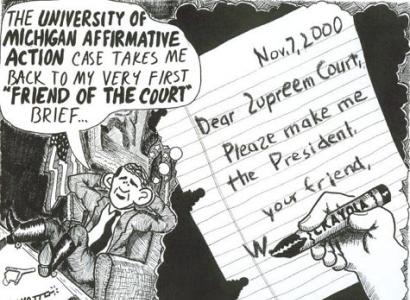 THE UNIVERSITY OF
MICHIGAN AFFIRMATIVE
ACTION CASE TAKES ME
BACK TO MY VERY FIRST
"FRIEND OF THE COURT"
BRIEF...
Nov. 7, 2000
Dear Zupreem Court,
Pleaze make me
the President.
your friend,
W
CRAYOLA